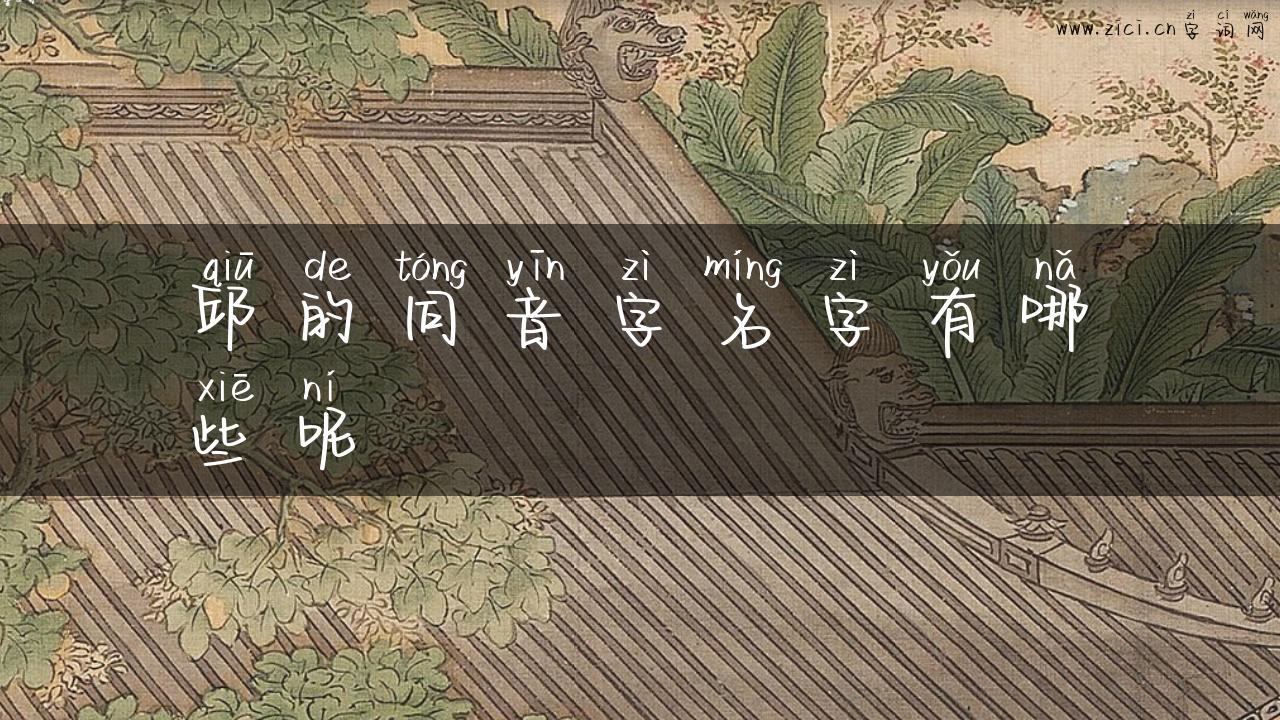 zì cí wǎng
www.zici.cn 字词网
qiū de tóng yīn zì míng zì yǒu nǎ
邱的同音字名字有哪
xiē ní
些呢